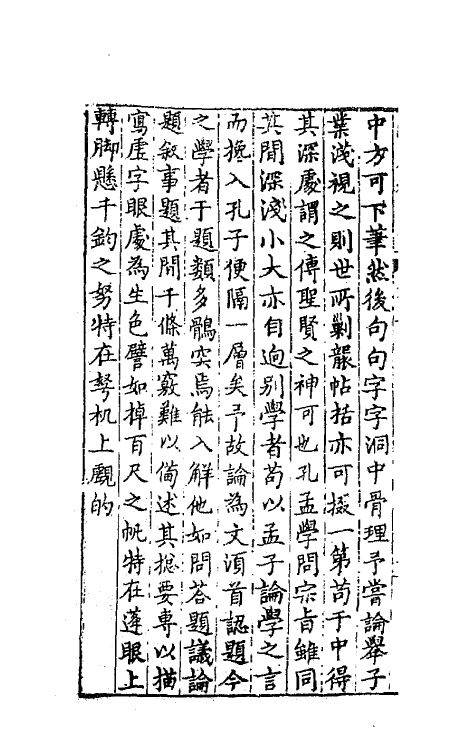 中方可下筆然後句句字字洞中骨理予嘗論舉子
業淺視之則世所剿襲帖括亦可掇一第苟于中得
其深處謂之傳聖賢之神可也孔孟學問宗旨雖同
其間深淺小大亦自逈别學者苟以孟子論學之言
而攙入孔子便隔一層矣予故論為文湏首認題今
之學者于題類多鶻突焉能入解他如問荅題議論
題叙事題其間千條萬竅難以偹述其摠要專以描
寫虛字眼處為生色譬如掉百尺之帆特在蓬眼上
轉脚懸千鈞之弩特在弩机上覷的